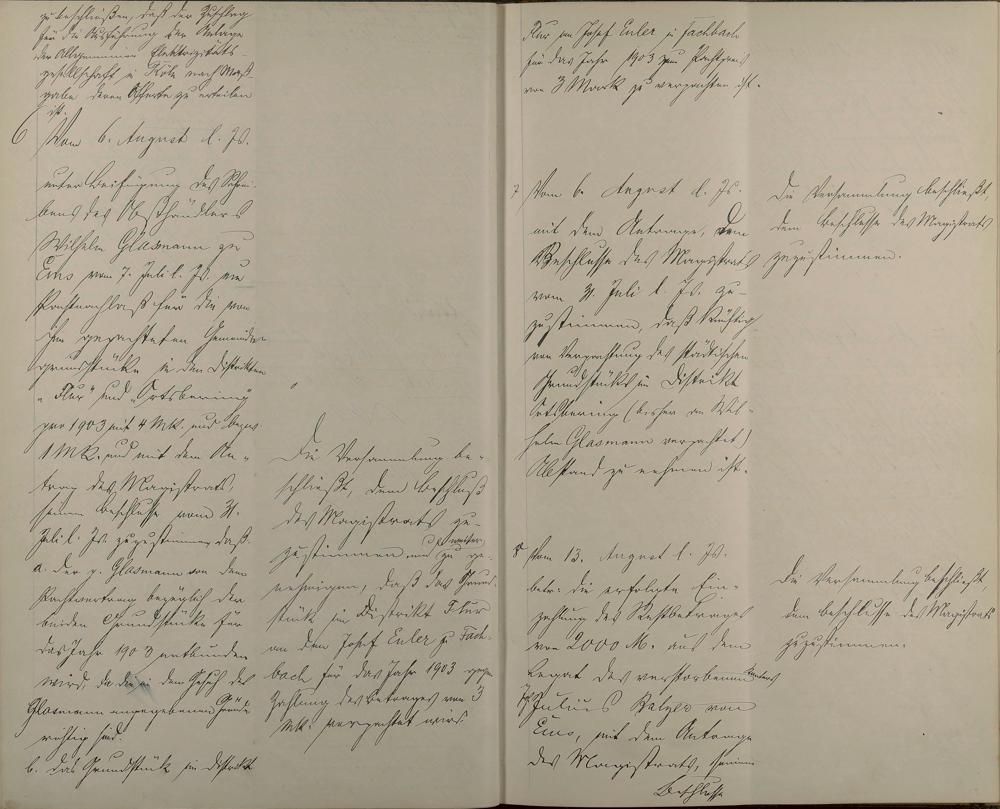 zu beschließen, daß der Zuschlag
für die Ausführung der Anlage
der Allgemeinen Elektrizitäts-
gesellschaft in Köln nach Maß-
gabe deren Offerte zu erteilen
ist.
6 Vom 6. August l. Js.
unter Beifügung des Schrei-
bens des Obsthändlers
Wilhelm Glasmann zu
Ems vom 7. Juli l. Js. um
Pachtnachlaß für die von
ihm gepachteten Gemeinde-
grundstücke in den Distrikten
"Flur" und "Ortsbering"
pro 1903 mit 4 Mk. und bezw.
1 Mk. und mit dem An-
trag des Magistrats,
seinem Beschlusse vom 31.
Juli l. Js. zuzustimmen, daß
a. der p. Glasmann von dem
Pachtvertrag bezüglich der
beiden Grundstücke für
das Jahr 1903 entbunden
wird, da die in dem Gesuch des
Glasmann angegebenen Gründe
richtig sind.
b. das Grundstück im Distrikte
Die Versammlung be-
schließt, dem Beschluß
des Magistrats zu-
zustimmen und weiter zu ge-
nehmigen, daß das Grund-
stück im Distrikt Flur
an den Josef Euler zu Fach-
bach für das Jahr 1903 gegen
Zahlung des Betrages von 3
Mk. verpachtet wird.
Flur an Josef Euler zu Fachbach
für das Jahr 1903 zum Pachtpreis
von 3 Mark zu verpachten ist.
7 Vom 6. August l. Js.
mit dem Antrage, dem
Beschlusse des Magistrats
vom 31. Juli l. Js. zu-
zustimmen, daß künftig
von Verpachtung des städtischen
Grundstücks im Distrikt
Ortsbering (bisher an Wil-
helm Glasmann verpachtet)
Abstand zu nehmen ist.
Die Versammlung beschließt,
dem Beschlusse des Magistrats
zuzustimmen.
8 Vom 13. August l. Js.
betr. die erfolgte Ein-
zahlung des Restbetrages
von 2000 M. aus dem
Legat des verstorbenen Rentners
Julius Balzer von
Ems, mit dem Antrage
des Magistrats, seinem
Beschlusse
Die Versammlung beschließt,
dem Beschlusse des Magistrats
zuzustimmen.